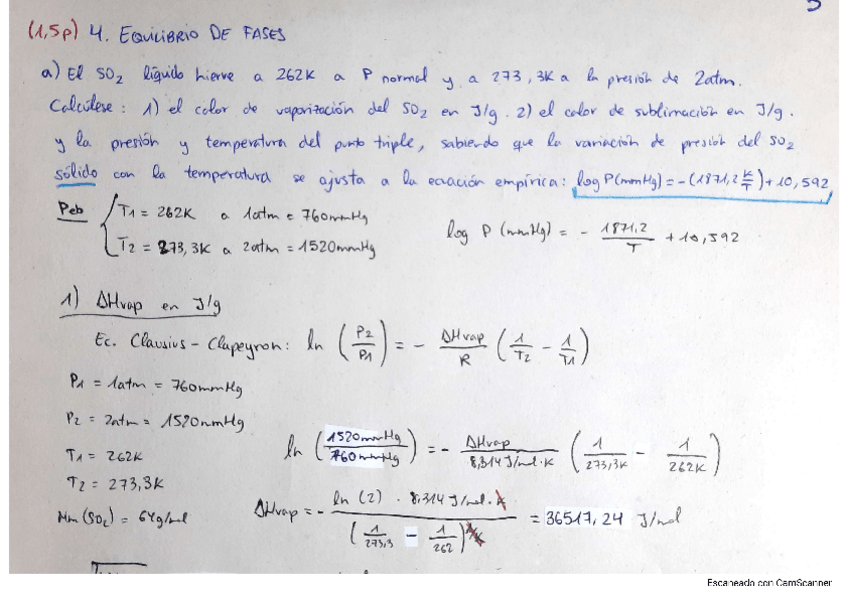 3
(1,5p) 4. EQUILIBRIO DE FASES
a) El SO2 líquido hierve a 262K a P normal y a 273,3K a la presión de 2atm.
Calcúlese: 1) el calor de vaporización del SO2 en J/g. 2) el calor de sublimación en J/g.
y la presión y temperatura del punto triple, sabiendo que la variación de presión del SO2
sólido con la temperatura se ajusta a la ecuación empírica: log P(mmHg)=-(1871,2 K/T)+10,592
Peb { T1 = 262K a 1atm = 760mmHg
T2 = 273,3K a 2atm = 1520mmHg
log P (mmHg) = - 1871,2/T + 10,592
1) ΔHvap en J/g
Ec. Clausius-Clapeyron: ln (P2/P1) = - ΔHvap/R (1/T2 - 1/T1)
P1 = 1atm = 760mmHg
P2 = 2atm = 1520mmHg
T1 = 262K
T2 = 273,3K
Mm (SO2) = 64g/mol
ln (1520mmHg/760mmHg) = - ΔHvap/8,314 J/mol·K (1/273,3K - 1/262K)
ΔHvap = - ln (2) · 8,314 J/mol·K/(1/273,3 - 1/262) 1/K = 36517,24 J/mol
Escaneado con CamScanner